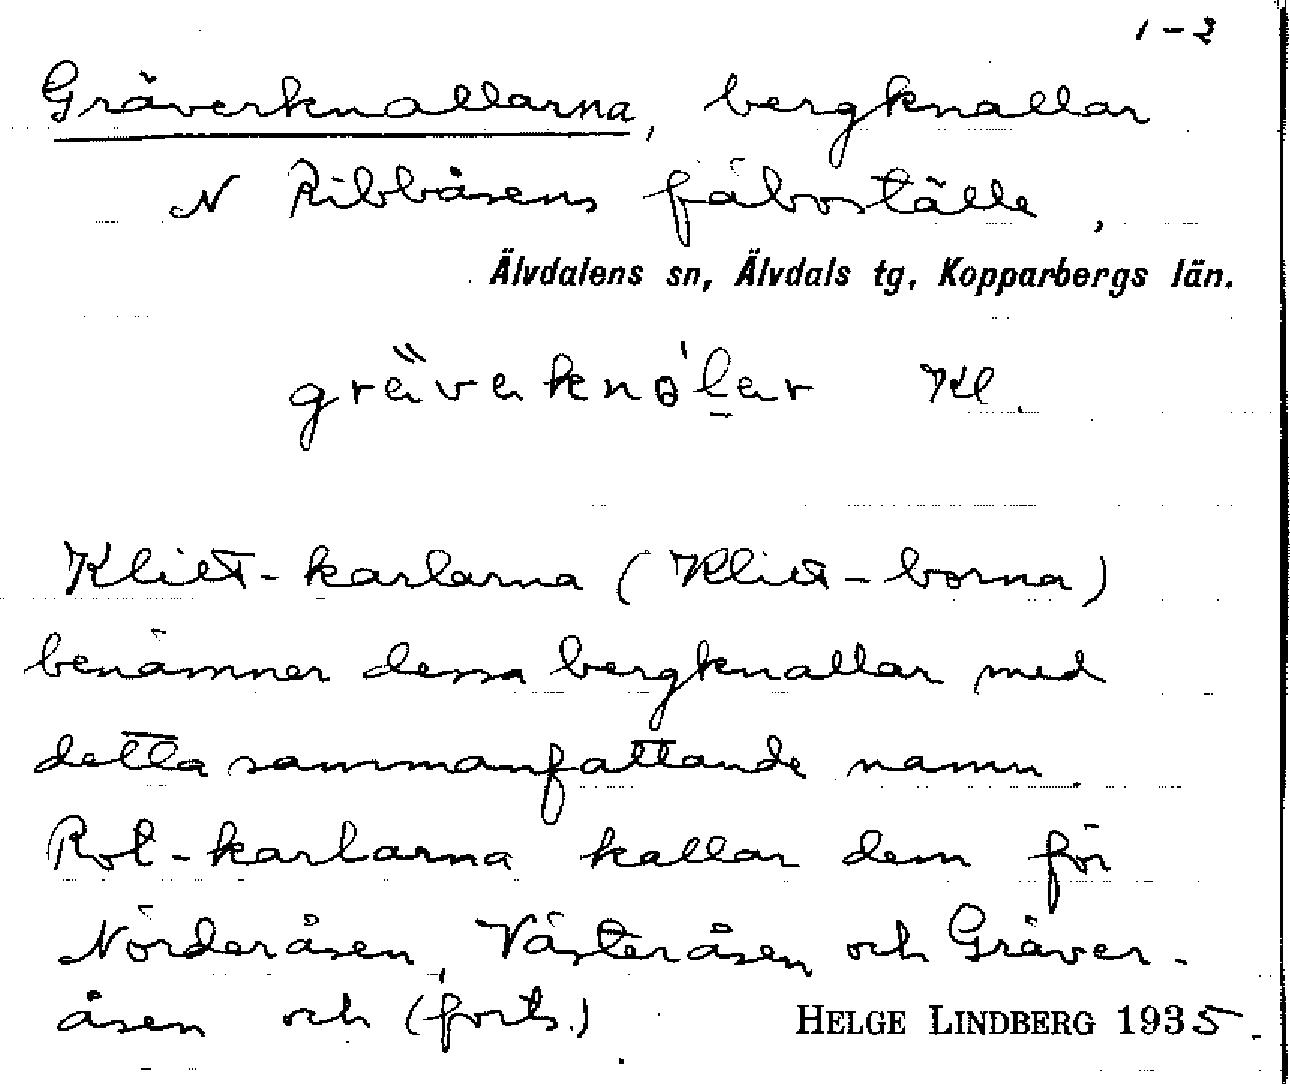 1-2
Gräverknallarna, bergknallar
N Ribbåsens fäboställe,
Älvdalens sn, Älvdals tg, Kopparbergs län.
Kl.
Klitt-karlarna (Klitt-borna)
benämner dessa bergknallar med
detta sammanfattande namn.
Rot-karlarna kallar dem för
Nörderåsen, Västeråsen och Gräver-
åsen och (forts.)
HELGE LINDBERG 1935